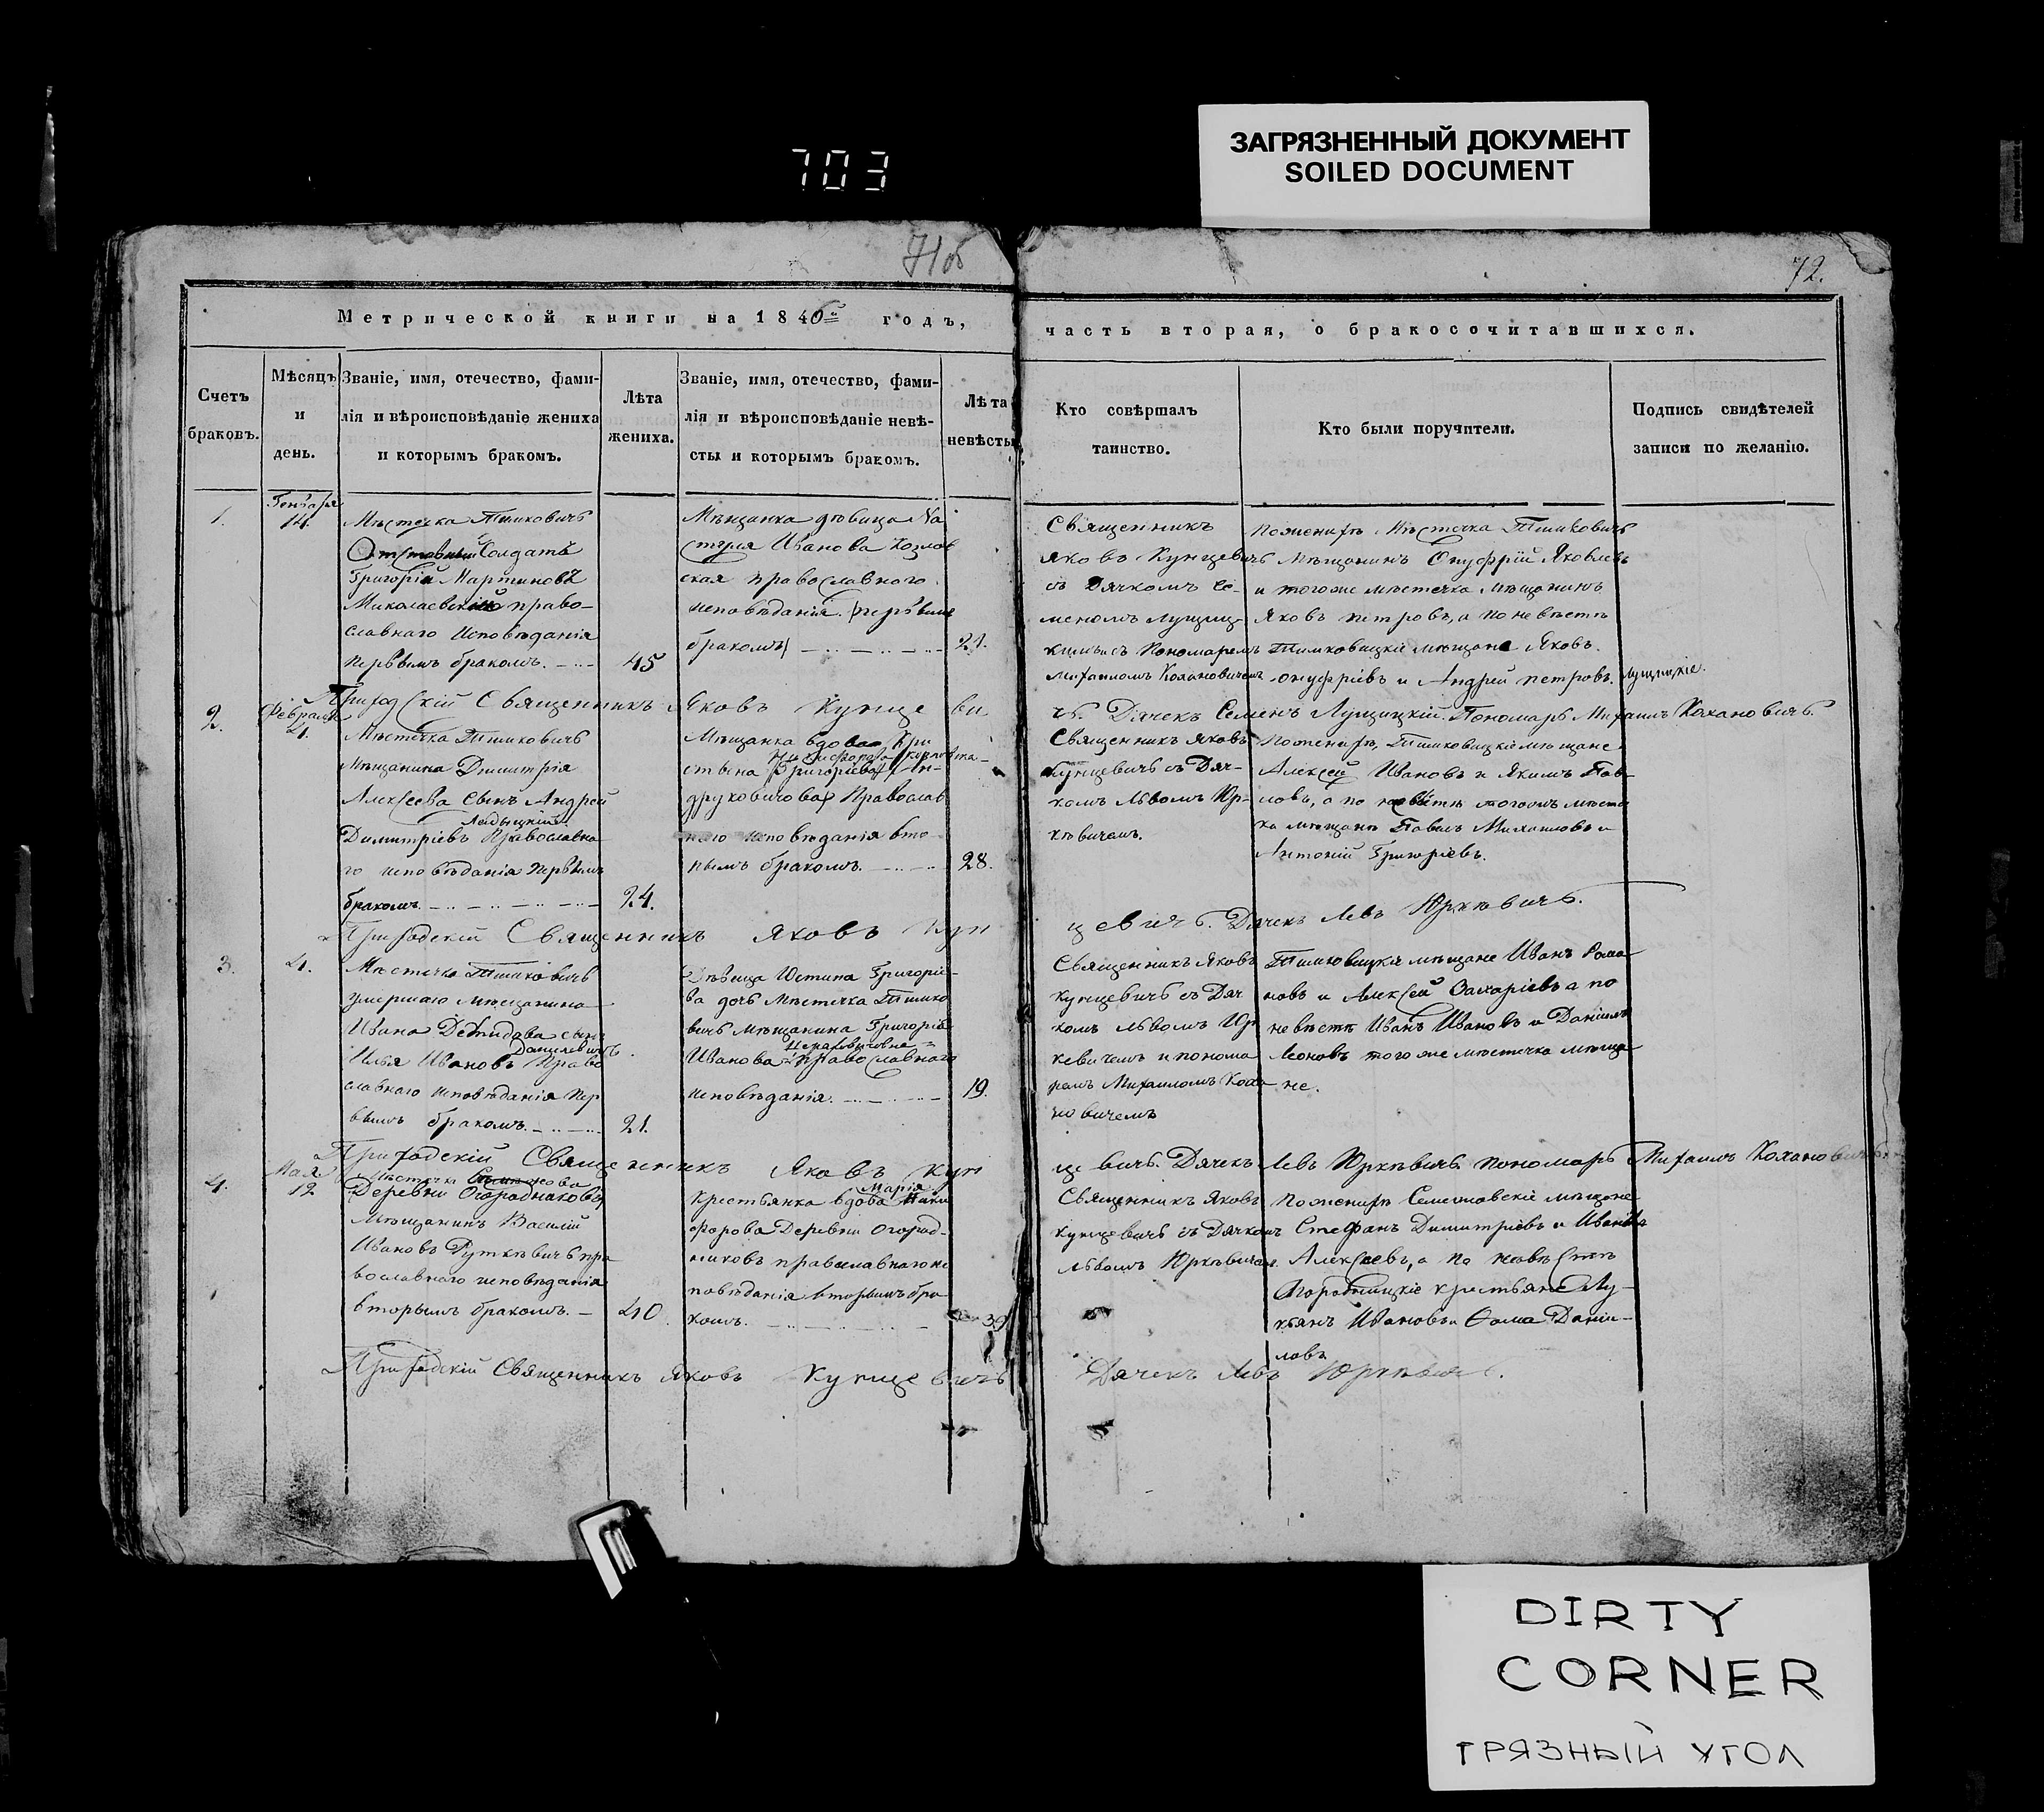 703
ЗАГРЯЗНЕННЫЙ ДОКУМЕНТ
SOILED DOCUMENT
71об
72.
Метрической книги на 1840й годъ,
часть вторая, о бракосочитавшихся.
Счетъ
браковъ.
Мѣсяцъ
и
день.
Званіе, имя, отечество, фами-
лія и вѣроисповѣданіе жениха
и которымъ бракомъ.
Лѣта
жениха.
Званіе, имя, отечество, фами-
лія и вѣроисповѣданіе невѣ-
сты и которымъ бракомъ.
Лѣта
невѣсты
Кто совѣршалъ
таинство.
Кто были поручители.
Подпись свидѣтелей
записи по желанію.
1.
Генваря
14.
Мѣстечка Тимковичь
Отставный Солдатъ
Григорій Мартиновъ
Миколаевскій право-
славнаго Исповѣданія
первымъ бракомъ.
45
Мѣщанка дѣвица На
стасія Иванова Козлов
ская православного
исповѣданія (первымъ
бракомъ)
21.
Священникъ
Яковъ Кунцевичь
съ Дячкомъ Се-
меномъ Лущиц-
кимъ и съ Пономаремъ
Михаиломъ Кохановичемъ
по женихѣ Мѣстечка Тимковичь
Мѣщанинъ Онуфрій Яковлевъ
и тогоже мѣстечка мѣщанинъ
Яковъ Петровъ, а по невѣстѣ
Тимковицкіе мѣщане Яковъ
Онуфріевъ и Андрей Петровъ Лущицкіе.
Приходскій Священникъ Яковъ Кунцеви
чь. Дячекъ Семенъ Лущицкій. Пономарь Михаилъ Кохановичь.
2.
Февраля
4.
Мѣстечка Тимковичь
Мѣщанина Димитрія
Алексеева сынъ Андрей
Димитріевъ Православна
го исповѣданія первымъ
бракомъ.
24.
Мѣщанка вдова Кри
стына Григоріева Ан-
друковичова Православ
наго исповѣданія вто
рымъ бракомъ.
28.
Священникъ Яковъ
Кунцевичь съ Дяч-
комъ Львомъ Юр-
кевичемъ.
по женихѣ, Тимковицкіе мѣщане
Алексей Ивановъ и Якимъ Пав-
ловъ, а по невѣстѣ тогожъ мѣсте
ка мѣщане Павелъ Михаиловъ и
Антоній Григоріевъ.
Приходскій Священникъ Яковъ Кун
цевичь. Дячекъ Левъ Юркевичь.
3.
4.
Мѣстечка Тимковичь
умершаго мѣщанина
Ивана Демидова сынъ
Данилевичъ.
Илья Ивановъ Право
славнаго исповѣданія пер
вымъ бракомъ.
21.
Дѣвица Юстина Григоріе-
ва дочь Мѣстечка Тимко
вичь мѣщанина Григорія
Иванова православнаго
исповѣданія.
19.
Священникъ Яковъ
Кунцевичь съ Дяч
комъ Львомъ Юр
кевичемъ и понома
ремъ Михаиломъ Коха
новичемъ
Тимковицкіе мѣщане Иванъ Рома
новъ и Алексей Захаріевъ а по
невѣстѣ Иванъ Ивановъ и Даніилъ
Леоновъ того же мѣстечка мѣща
не.
Приходскій Священникъ Яковъ Кун
цевичь. Дячекъ Левъ Юркевичь. Пономарь Михаилъ Кохановичь.
4.
Мая
12
Мѣстечка
Деревни Огородникова
Мѣщанинъ Василій
Ивановъ Руткевичь пра
вославнаго исповѣданія
вторымъ бракомъ.
40.
Марія
Крестьянка вдова Ники
форова Деревни Огород-
никовъ православнаго ис
повѣданія вторымъ бра
комъ.
39
Священникъ Яковъ
Кунцевичь съ Дячкомъ
Львомъ Юркевичемъ.
по женихѣ Семежовскіе мѣщане
Стефанъ Димитріевъ и Иванъ
Алексеевъ, а по невѣстѣ
Огородницкіе крестьяне Лу-
кьянъ Ивановъ и Фома Дані-
ловъ
Приходскій Священникъ Яковъ Кунцевичь
Дячекъ Левъ Юркевичь.
DIRTY
CORNER
ГРЯЗНЫЙ УГОЛ